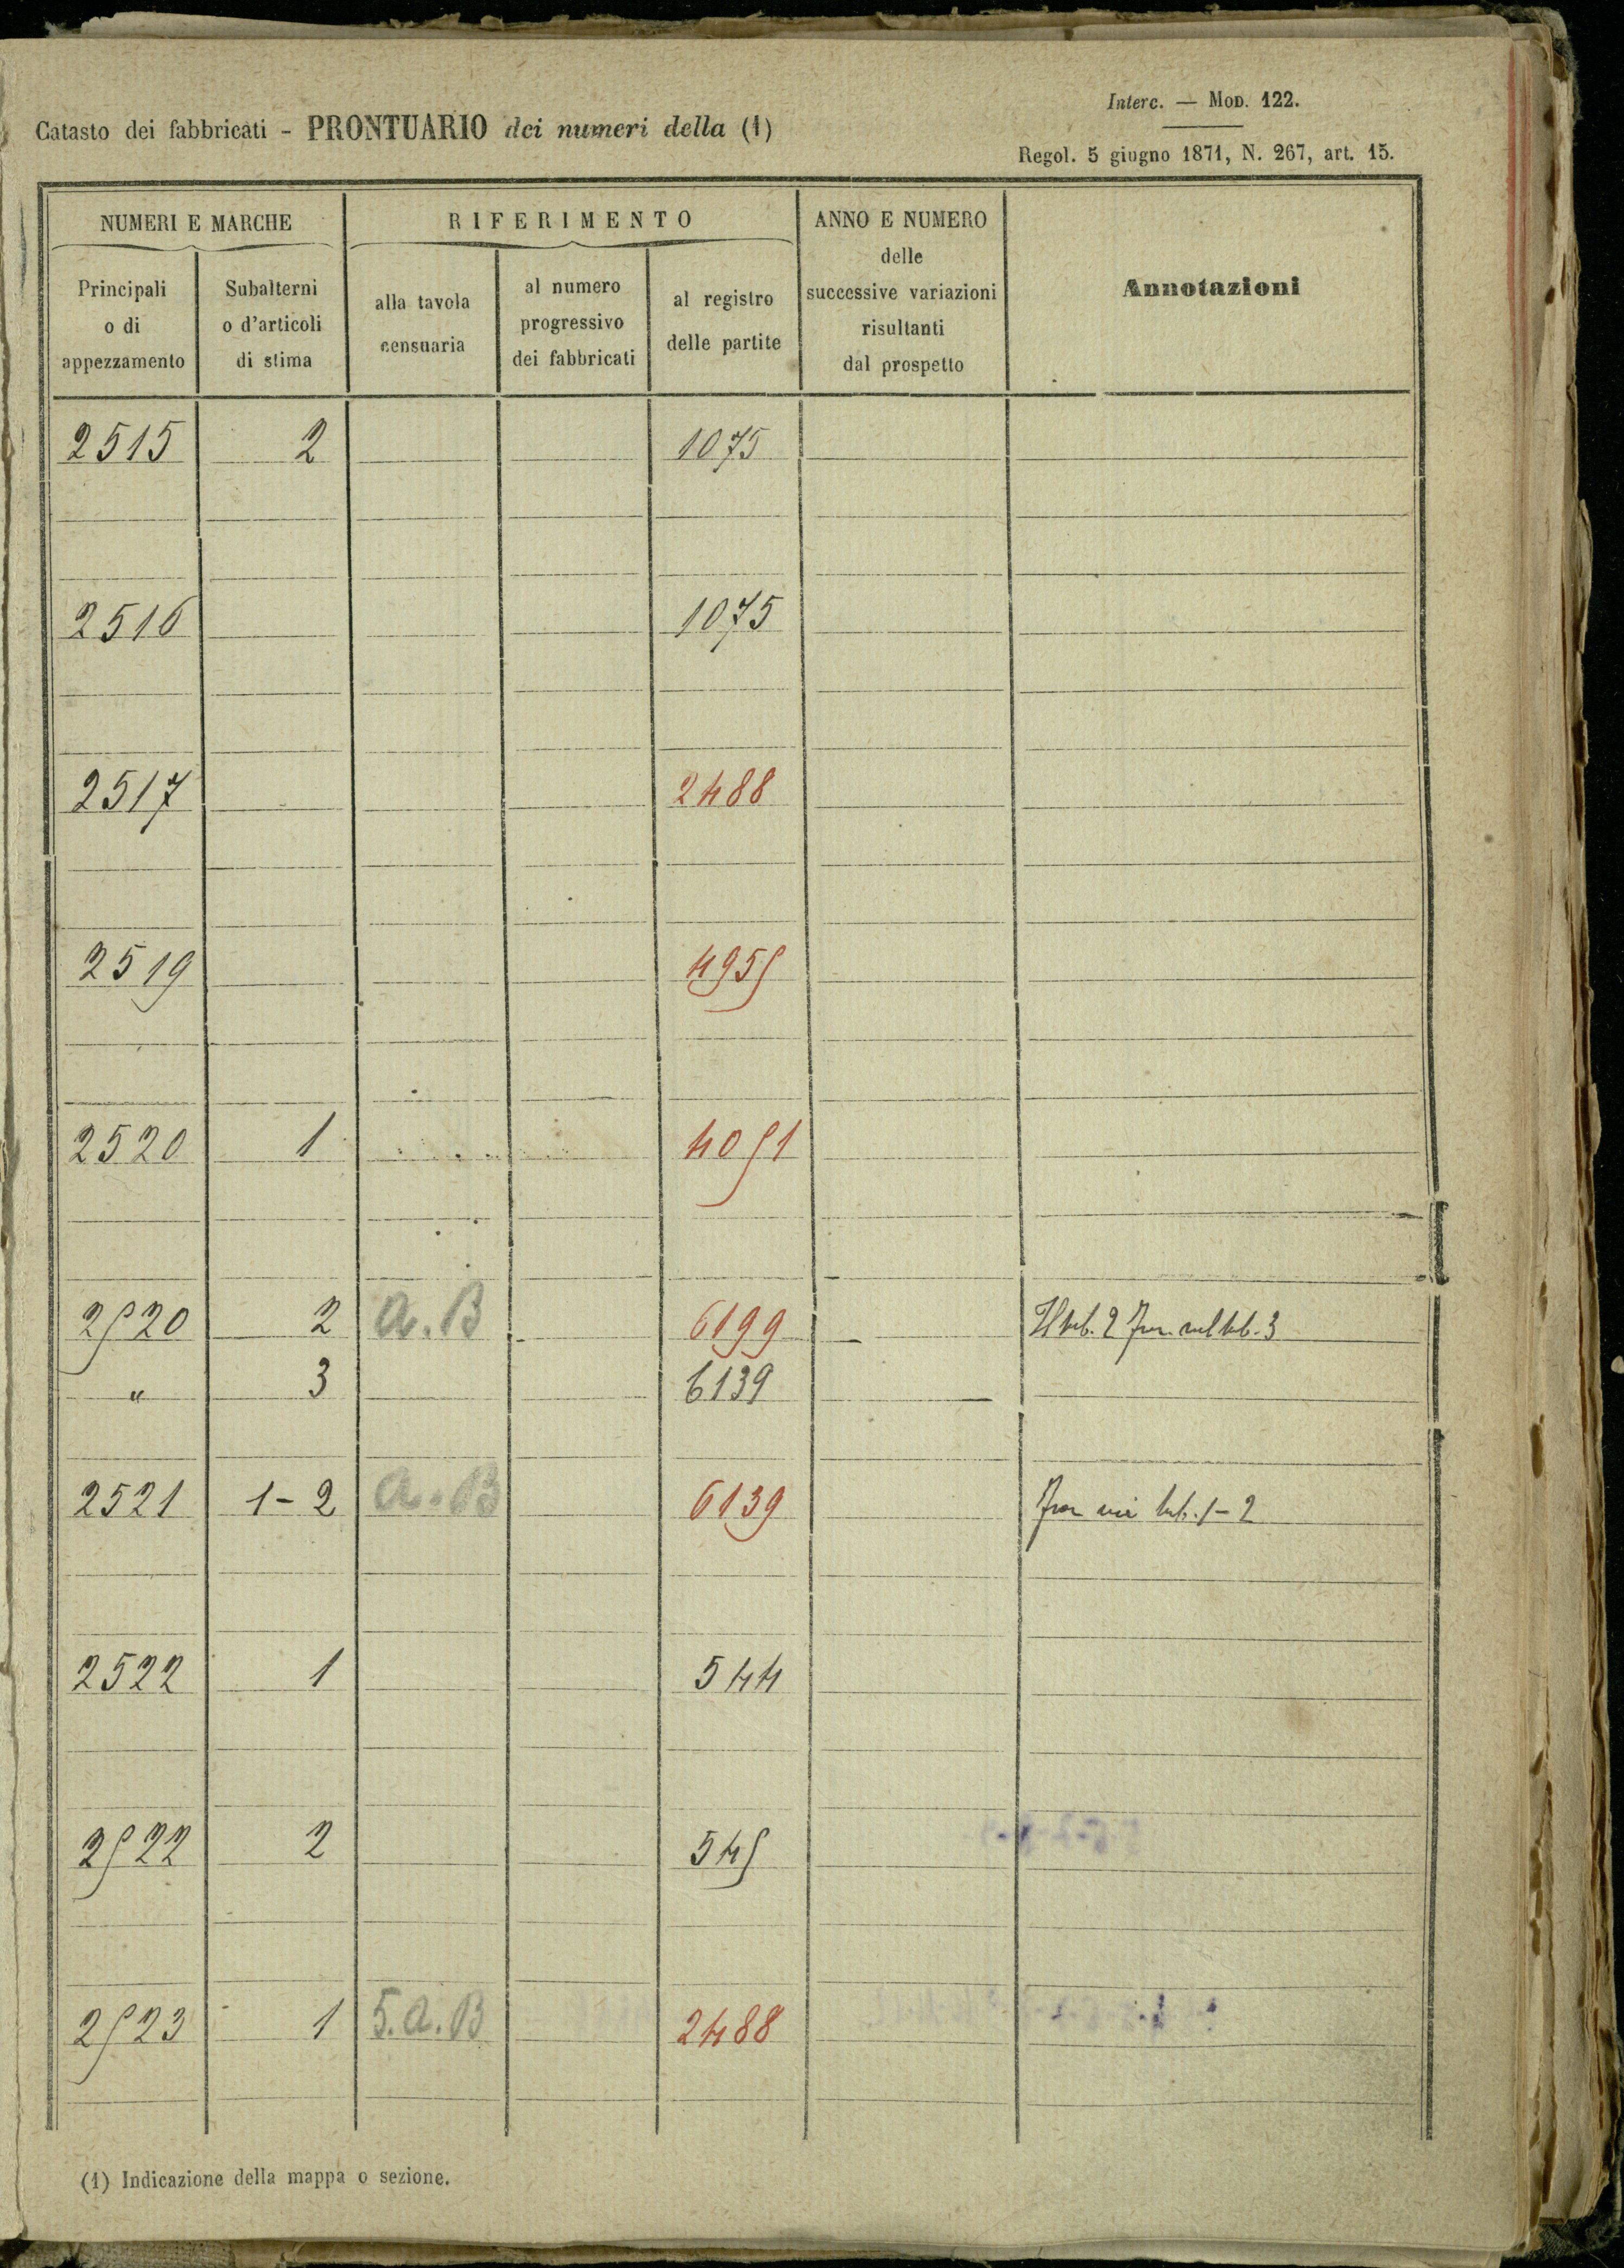 Interc. — Mod. 122.
Catasto dei fabbricati - PRONTUARIO dei numeri della (1)
Regol. 5 giugno 1871, N. 267, art. 15.
NUMERI E MARCHE
RIFERIMENTO
ANNO E NUMERO
delle
successive variazioni
risultanti
dal prospetto
Annotazioni
Principali
o di
appezzamento
Subalterni
o d'articoli
di stima
alla tavola
censuaria
al numero
progressivo
dei fabbricati
al registro
delle partite
2515 2 1075
2516 1075
2517 2488
2519 4955
2520 1 4051
2520 2 a.B 6199 Il sub. 2 sub. 3
" 3 6139
2521 1-2 a.B 6139 sub. 1-2
2522 1 544
2522 2 545
2523 1 5.a.B 2488
(1) Indicazione della mappa o sezione.